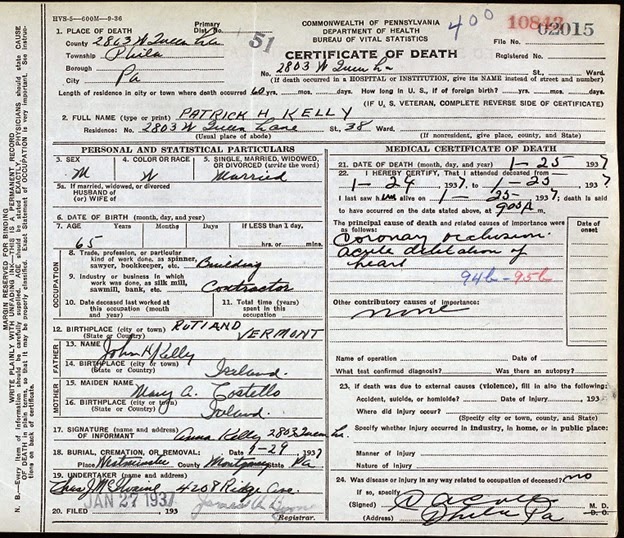 HVS-5—600M—9-36
COMMONWEALTH OF PENNSYLVANIA
DEPARTMENT OF HEALTH
BUREAU OF VITAL STATISTICS
CERTIFICATE OF DEATH
400
10843
File No. 02015
Registered No.
1. PLACE OF DEATH
Primary Dist. No.
51
County 2803 W Queen La
Township Phila
Borough
City Pa
No. 2803 W Queen La St., Ward.
(If death occurred in a HOSPITAL or INSTITUTION, give its NAME instead of street and number)
Length of residence in city or town where death occurred 60 yrs. mos. days. How long in U. S., if of foreign birth? yrs. mos. days.
(IF U. S. VETERAN, COMPLETE REVERSE SIDE OF CERTIFICATE)
2. FULL NAME (type or print) PATRICK H KELLY
Residence: No. 2803 W Queen Lane St., 38 Ward.
(Usual place of abode) (If nonresident, give place, county, and State)
PERSONAL AND STATISTICAL PARTICULARS
3. SEX
M
4. COLOR OR RACE
W
5. SINGLE, MARRIED, WIDOWED, OR DIVORCED (write the word)
Married
5a. If married, widowed, or divorced
HUSBAND of
(or) WIFE of
6. DATE OF BIRTH (month, day, and year)
7. AGE Years Months Days If LESS than 1 day,
65 hrs. or mins.
OCCUPATION
8. Trade, profession, or particular kind of work done, as spinner, sawyer, bookkeeper, etc. Building
9. Industry or business in which work was done, as silk mill, sawmill, bank, etc. Contractor
10. Date deceased last worked at this occupation (month and year)
11. Total time (years) spent in this occupation
12. BIRTHPLACE (city or town) RUTLAND
(State or Country) VERMONT
FATHER
13. NAME John H Kelly
14. BIRTHPLACE (city or town)
(State or Country) Ireland.
MOTHER
15. MAIDEN NAME Mary A. Costello
16. BIRTHPLACE (city or town)
(State or Country) Ireland.
17. SIGNATURE (and address) OF INFORMANT Anna Kelly 2803 Queen La.
18. BURIAL, CREMATION, OR REMOVAL: Date 1-29 1937
Place Westminster County Montgomery State Pa
19. UNDERTAKER (name and address)
4208 Ridge Ave.
JAN 27 1937
20. FILED , 193
Registrar.
MEDICAL CERTIFICATE OF DEATH
21. DATE OF DEATH (month, day, and year) 1-25 1937
22. I HEREBY CERTIFY, That I attended deceased from
1-24 1937, to 1-25 1937
I last saw him alive on 1-25- 1937; death is said
to have occurred on the date stated above, at 9:05 P.m.
The principal cause of death and related causes of importance were as follows:
Date of onset
Coronary occlusion.
acute dilatation of
heart
94b-95b
Other contributory causes of importance:
none
Name of operation Date of
What test confirmed diagnosis? Was there an autopsy?
23. If death was due to external causes (violence), fill in also the following:
Accident, suicide, or homicide? Date of injury , 193
Where did injury occur?
(Specify city or town, county, and State)
Specify whether injury occurred in industry, in home, or in public place:
Manner of injury
Nature of injury
24. Was disease or injury in any way related to occupation of deceased? no
If so, specify
(Signed) M. D.
(Address) Phila Pa
MARGIN RESERVED FOR BINDING
WRITE PLAINLY WITH UNFADING INK—THIS IS A PERMANENT RECORD
N. B.—Every item of information should be carefully supplied. AGE should be stated EXACTLY. PHYSICIANS should state CAUSE OF DEATH in plain terms, so that it may be properly classified. Exact Statement of OCCUPATION is very important. See instructions on back of certificate.